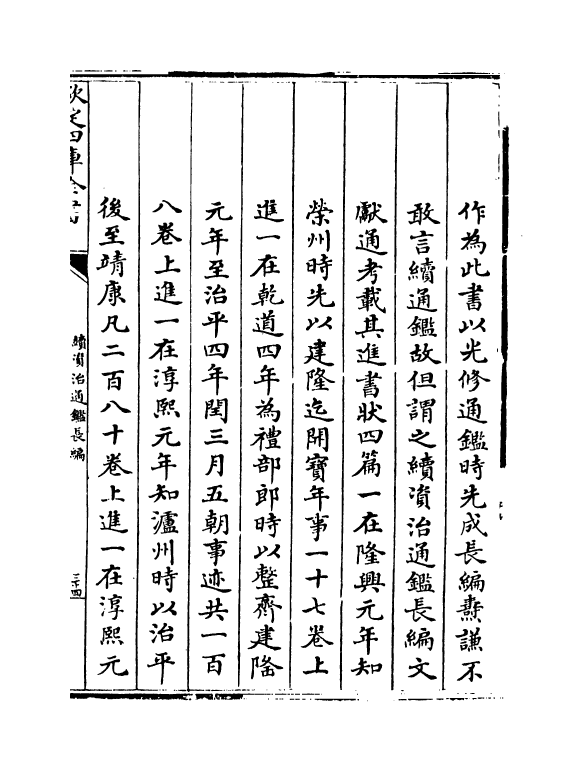 作為此書以光修通鑑時先成長編燾謙不
敢言續通鑑故但謂之續資治通鑑長編文
獻通考載其進書狀四篇一在隆興元年知
榮州時先以建隆迄開寶年事一十七卷上
進一在乾道四年為禮部郎時以整齊建隆
元年至治平四年閏三月五朝事迹共一百
八卷上進一在淳熙元年知瀘州時以治平
後至靖康凡二百八十卷上進一在淳熙元
欽定四庫全書
續資治通鑑長編